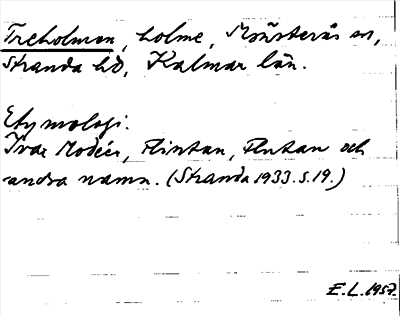 Treholmen, holme, Mönsterås sn,
Stranda hd, Kalmar län.
Etymologi.
Ivar Modéer, Flintan, Flutan och
andra namn. (Stranda 1933. s. 19.)
E.L. 1957.